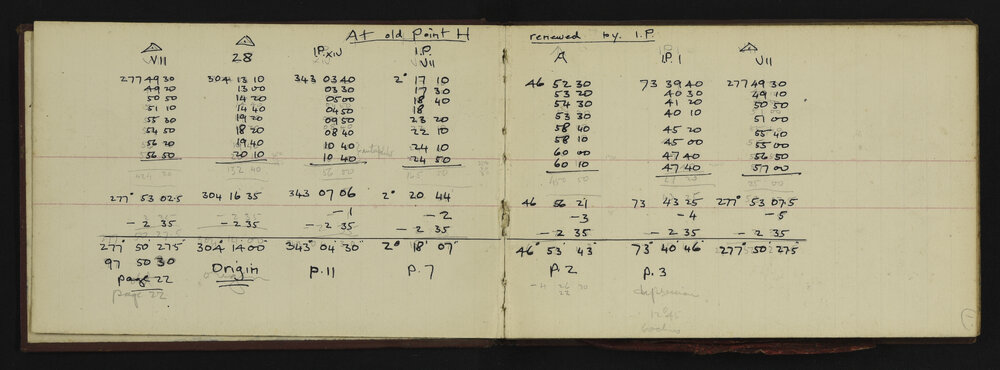 At old Point H renewed by I.P.
△ △ I.P. XIV I.P. A I.P. 1 △
VII 28 VII VII
277 49 30 304 13 10 343 03 40 2° 17 10 46 52 30 73 39 40 277 49 30
49 20 13 00 03 30 17 30 53 20 40 30 49 10
50 50 14 20 05 00 18 40 54 30 41 20 50 50
51 10 14 40 04 50 18 53 30 40 10 51 00
55 30 19 20 09 50 23 20 58 40 45 20 55 40
54 50 18 20 08 40 22 10 58 10 45 00 55 00
56 20 19 40 10 40 24 10 60 00 47 40 56 50
56 50 20 10 10 40 24 50 60 10 47 40 57 00
277° 53 02.5 304 16 35 343 07 06 2° 20 44 46 56 21 73 43 25 277° 53 07.5
-1 -2 -3 -4 -5
- 2 35 - 2 35 - 2 35 - 2 35 - 2 35 - 2 35 - 2 35
277° 50' 27.5" 304° 14' 00" 343° 04' 30" 2° 18' 07" 46° 53' 43" 73° 40' 46" 277° 50' 27.5
97 50 30 Origin P.11 P.7 P.2 P.3
page 22
page 22